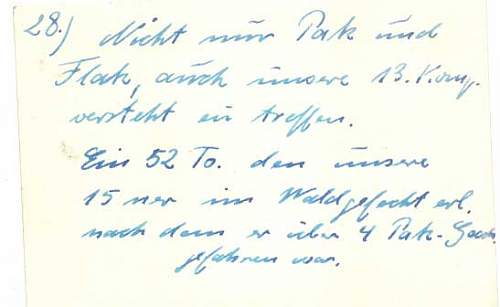 28.) Nicht nur Pak und
Flak, auch unsere 13. Komp.
versteht zu treffen.
Ein 52 To. den unsere
15 ner im Waldgefecht erl.
nach dem er über 4 Pak-Gesch.
gefahren war.